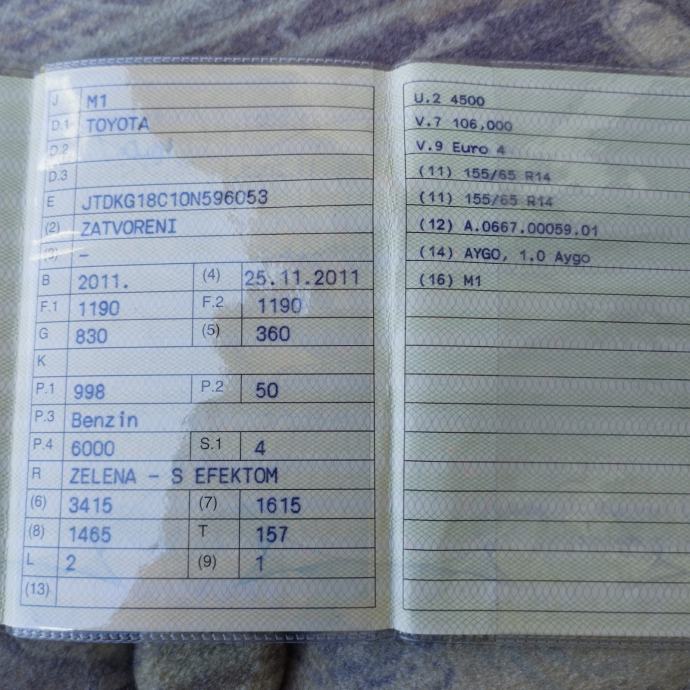 J M1
D.1 TOYOTA
D.2
D.3
E JTDKG18C10N596053
(2) ZATVORENI
(3) –
B 2011. (4) 25.11.2011
F.1 1190 F.2 1190
G 830 (5) 360
K
P.1 998 P.2 50
P.3 Benzin
P.4 6000 S.1 4
R ZELENA – S EFEKTOM
(6) 3415 (7) 1615
(8) 1465 T 157
L 2 (9) 1
(13)
U.2 4500
V.7 106,000
V.9 Euro 4
(11) 155/65 R14
(11) 155/65 R14
(12) A.0667.00059.01
(14) AYGO, 1.0 Aygo
(16) M1